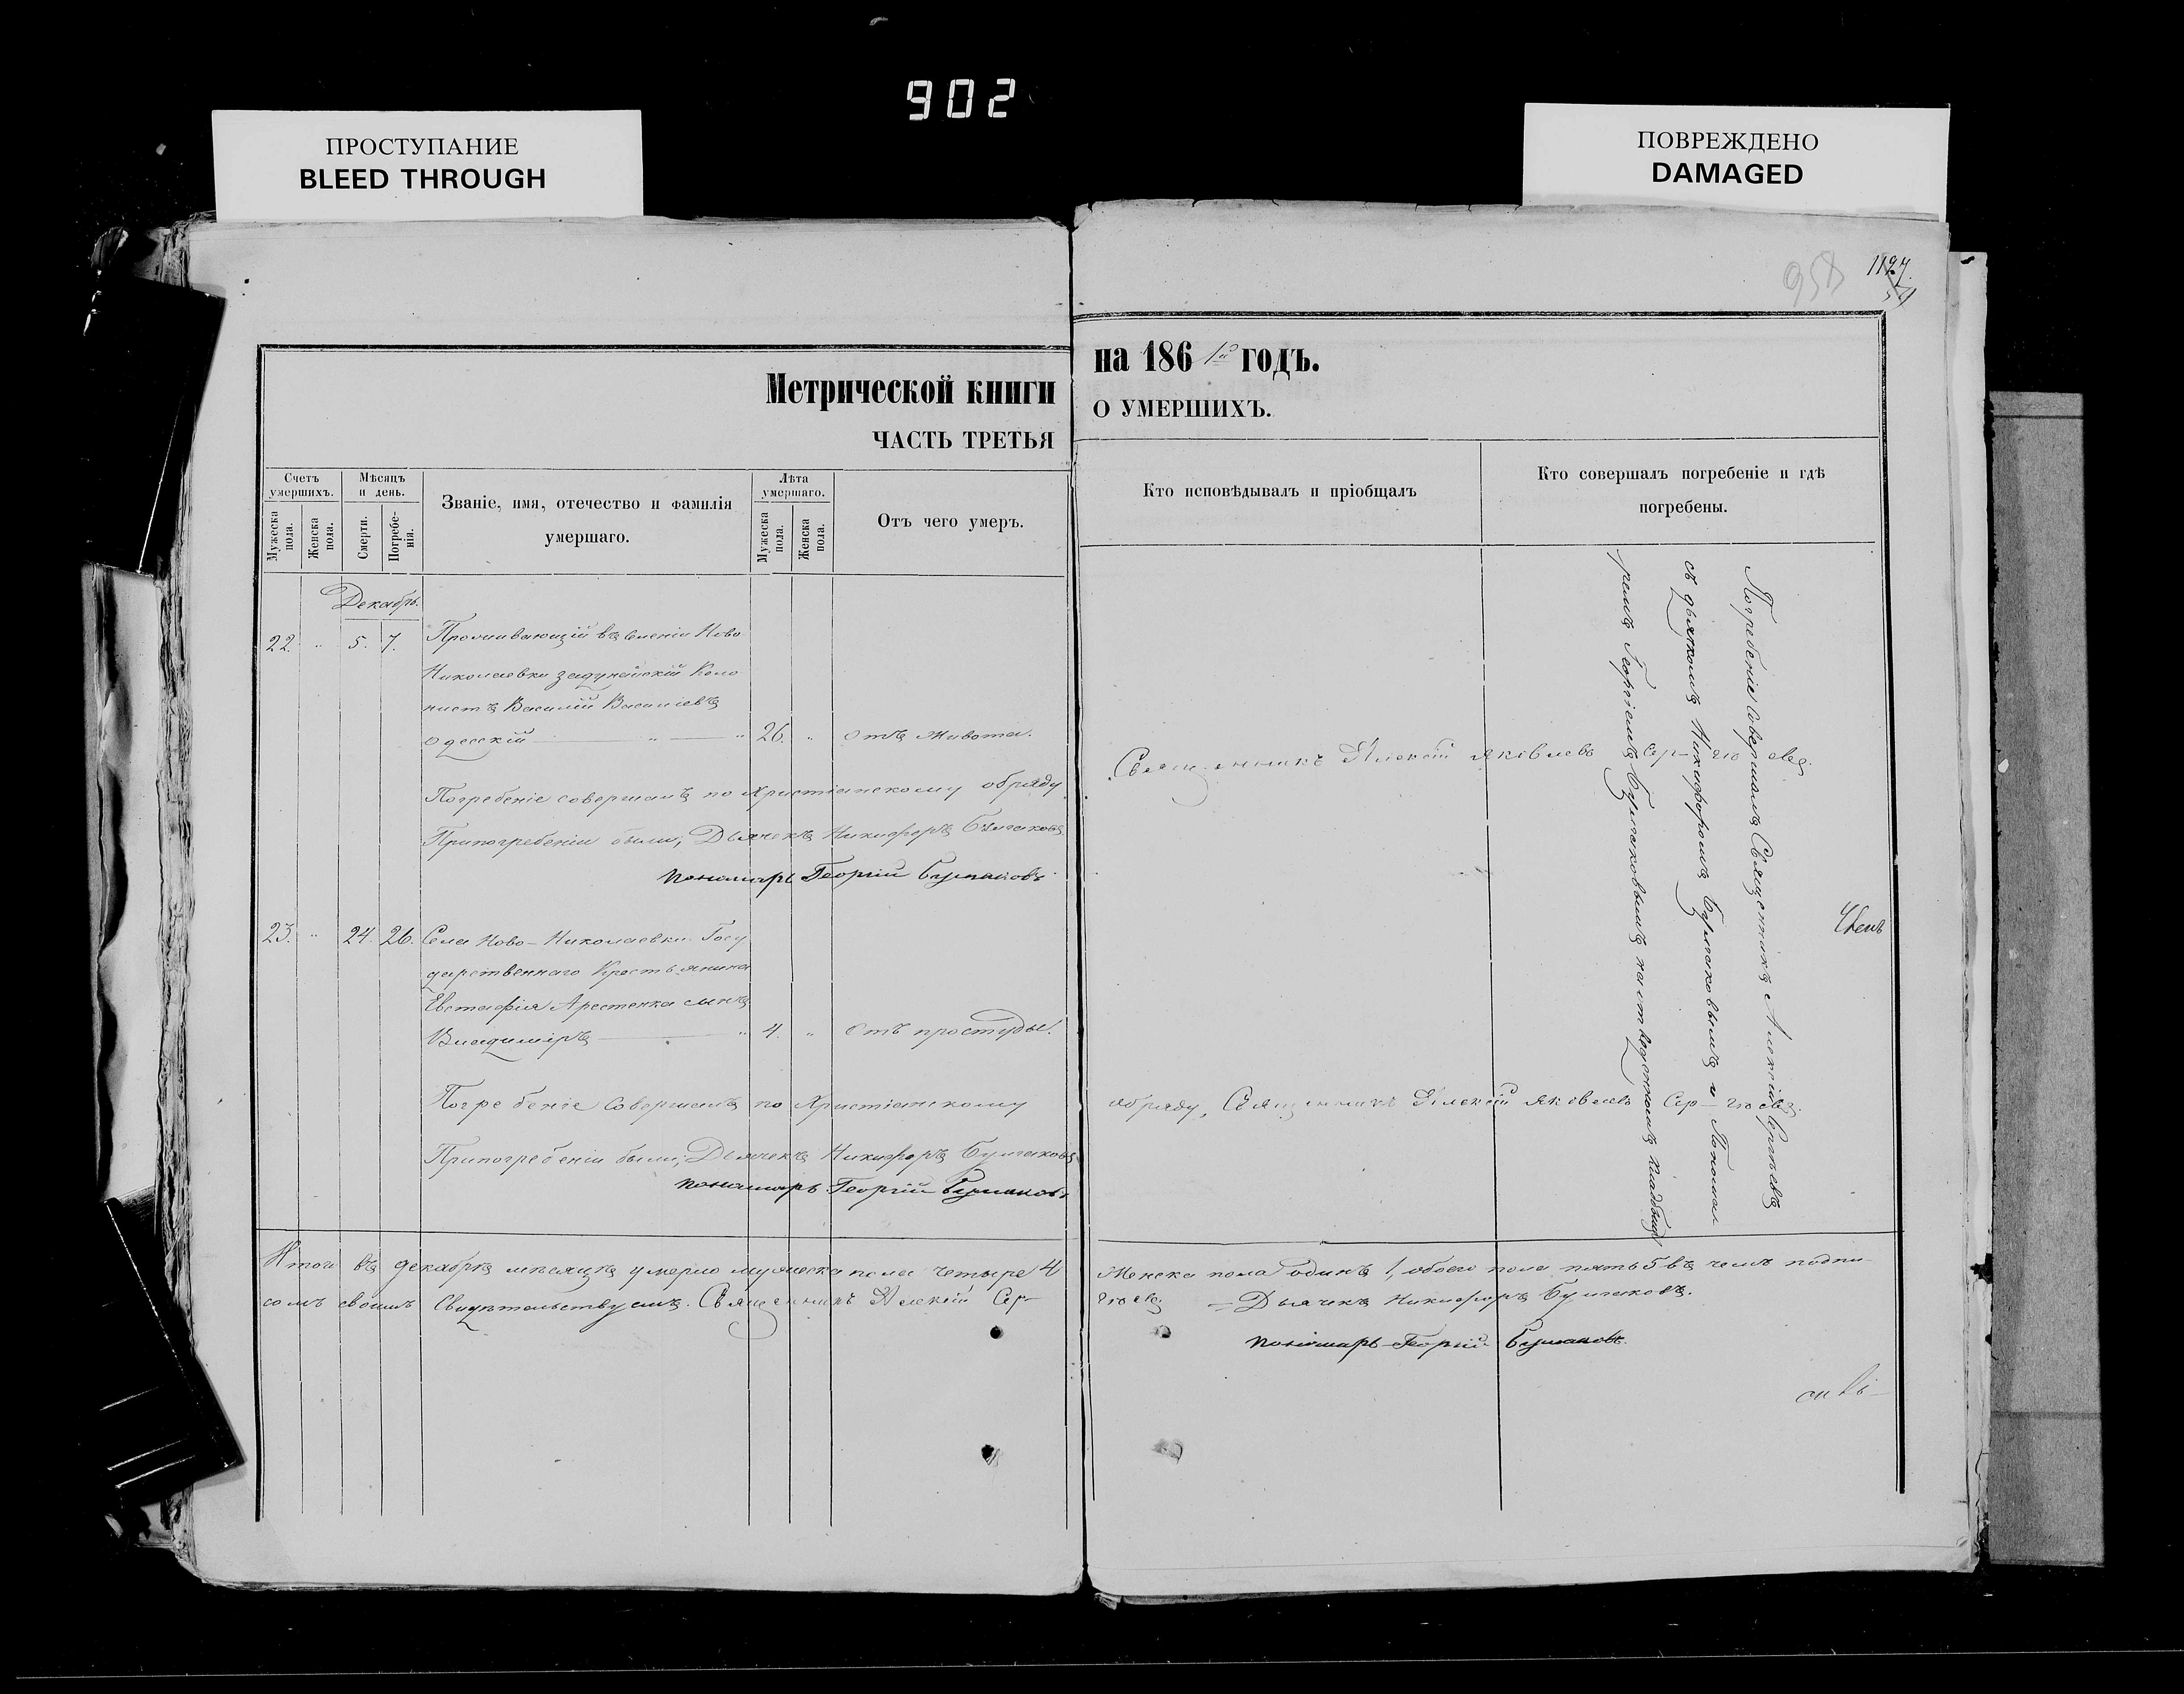 902
ПРОСТУПАНИЕ
BLEED THROUGH
ПОВРЕЖДЕНО
DAMAGED
958
1127
Метрической книги
ЧАСТЬ ТРЕТЬЯ
на 186 1й годъ.
О УМЕРШИХЪ.
Счетъ умершихъ.
Мужеска пола.
Женска пола.
Мѣсяцъ и день.
Смерти.
Погребе-
нія.
Званіе, имя, отечество и фамилія
умершаго.
Лѣта умершаго.
Мужеска пола.
Женска пола.
Отъ чего умеръ.
Кто исповѣдывалъ и пріобщалъ
Кто совершалъ погребеніе и гдѣ
погребены.
Декабрь.
22. " 5. 7. Проживающій въ селеніи Ново
Николаевки задунайскій Коло
нистъ Василій Василіевъ
Одесскій " " 26. " Отъ живота.
Погребеніе совершалъ по Христіанскому обряду
Священникъ Алексій Яковлевъ Сер-гіевъ.
Припогребеніи были; Дьячекъ Никифоръ Булгаковъ
пономарь Георгій Булгаковъ
23. " 24. 26. Села Ново-Николаевки Госу
дарственнаго Крестьянина
Евстафія Арестенка сынъ
Владиміръ " 4. " Отъ простуды.
Погребеніе совершалъ по Христіанскому
обряду, Священникъ Алексій Яковлевъ Сер-гіевъ.
Припогребеніи были; Дьячекъ Никифоръ Булгаковъ
пономарь Георгій Булгаковъ
Погребеніе совершалъ Священникъ Алексій Сергѣевъ
съ дьячкомъ Никифоромъ Булгаковымъ и Понома
ремъ Георгіемъ Булгаковымъ на отведенномъ кладбищѣ
Итого въ декабрѣ мѣсяцѣ умерло мужеска пола четыре 4
Женска пола одинъ 1, обоего пола пять 5 въ чемъ подпи-
сомъ своимъ свидѣтельствуемъ. Священникъ Алексій Сер-
гіевъ
Дьячекъ Никифоръ Булгаковъ.
пономарь Георгій Булгаковъ.